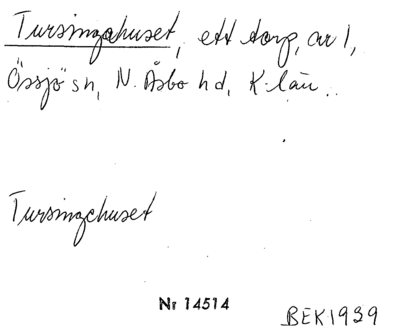 Tursingehuset, ett torp, av 1,
Össjö sn, N. Åsbo hd, K-län.
Tursingehuset
Nr 14514
BEK 1939